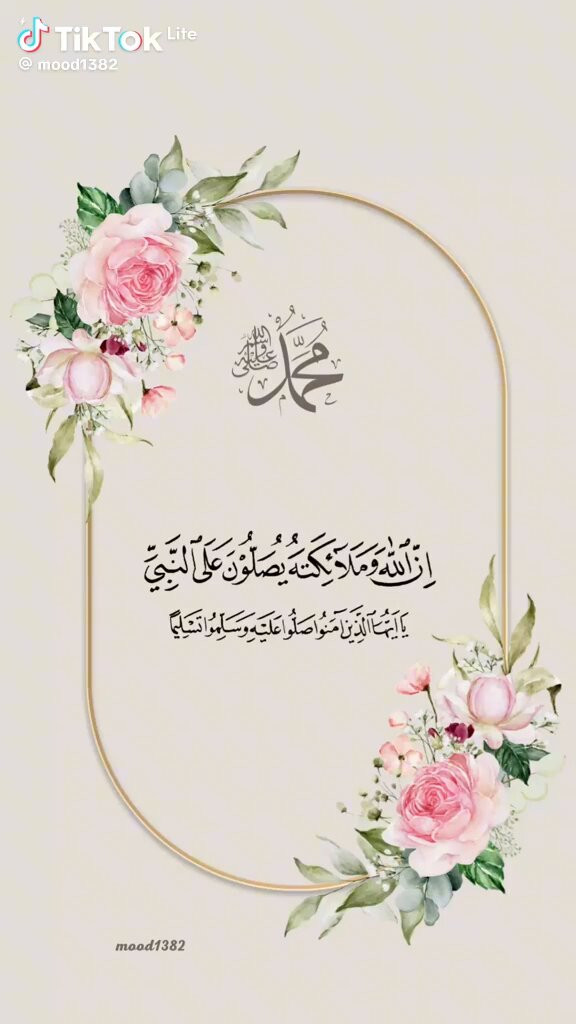 TikTok Lite
@ mood1382
محمد صلى الله عليه وسلم
اِنَّ ٱللَّهَ وَمَلَآئِكَتَهُ يُصَلُّوْنَ عَلَى ٱلنَّبِيِّ
يَا اَيُّهَا ٱلَّذِينَ آمَنُوا صَلُّوا عَلَيْهِ وَسَلِّمُوا تَسْلِيمًا
mood1382